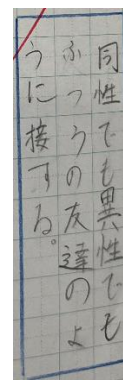 同性でも異性でも
ふつうの友達のよ
うに接する。